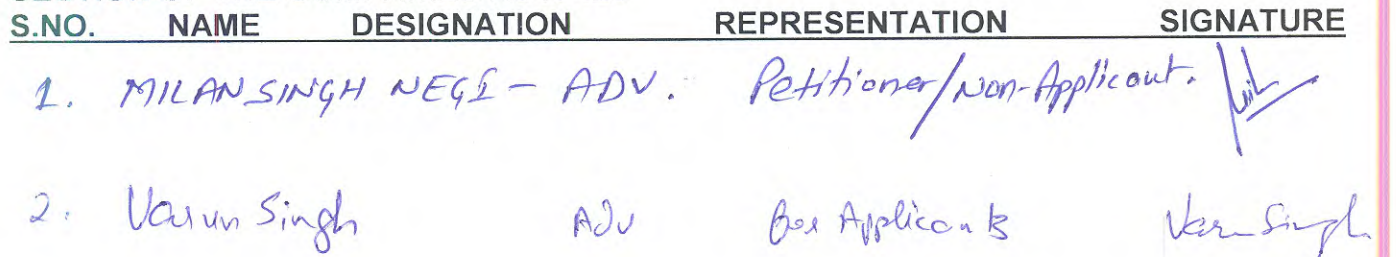 S.NO. NAME DESIGNATION REPRESENTATION SIGNATURE
1. MILAN SINGH NEGI - ADV. Petitioner/Non-Applicant.
2. Varun Singh Adv for Applicants Varun Singh